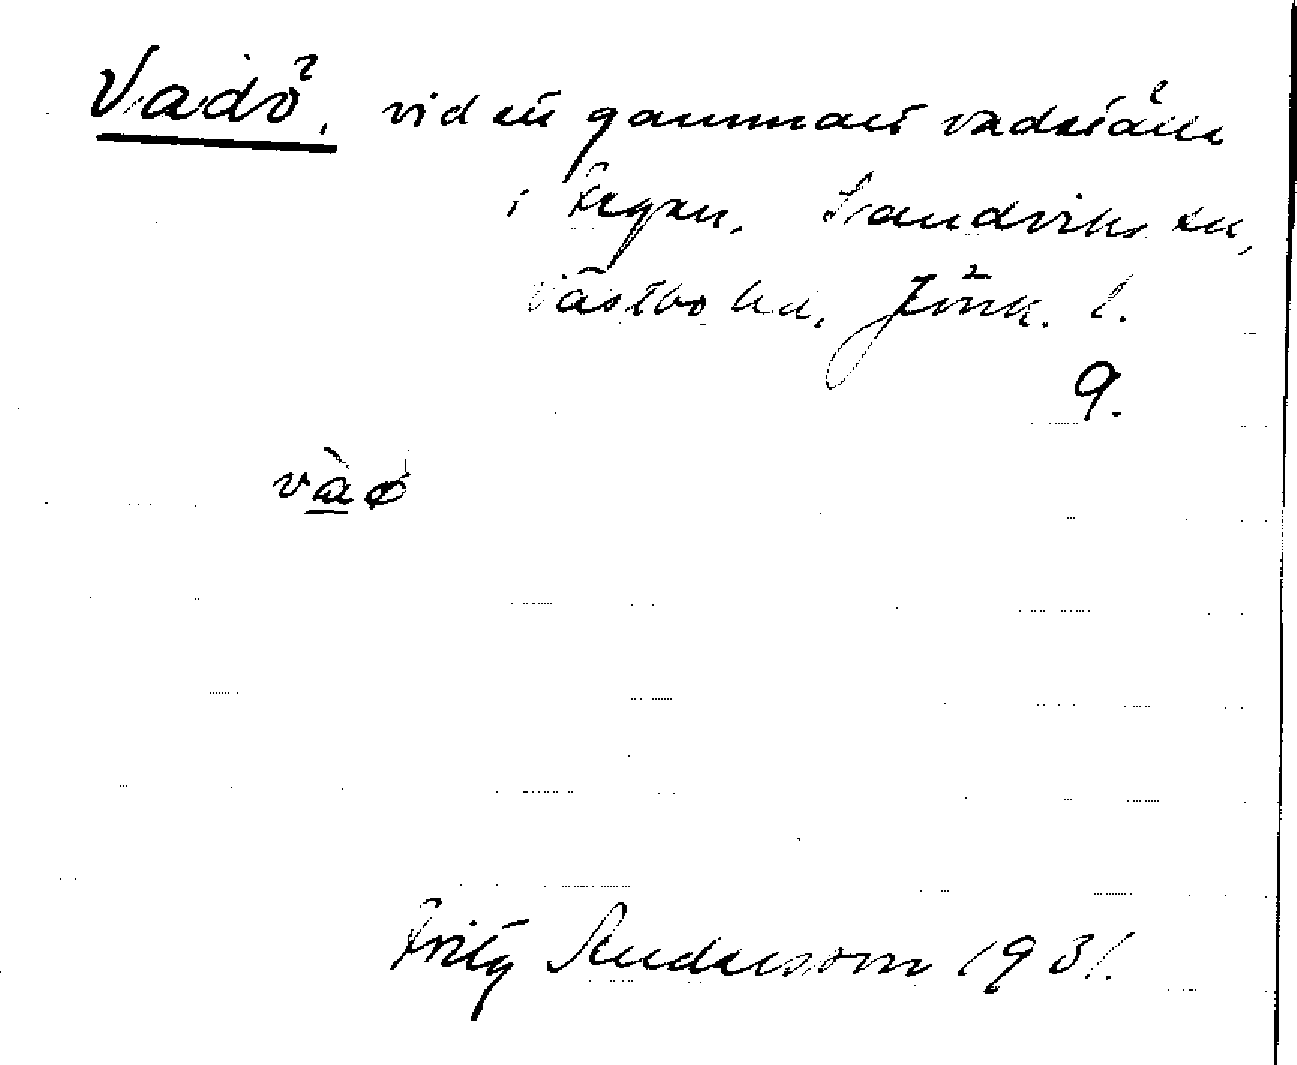 Vadö, vid ett gammalt vadställe
i Fegen. Sandviks sn,
Västbo hd, Jönk. l.
9.
vàø
Fritz Andersson 1931.